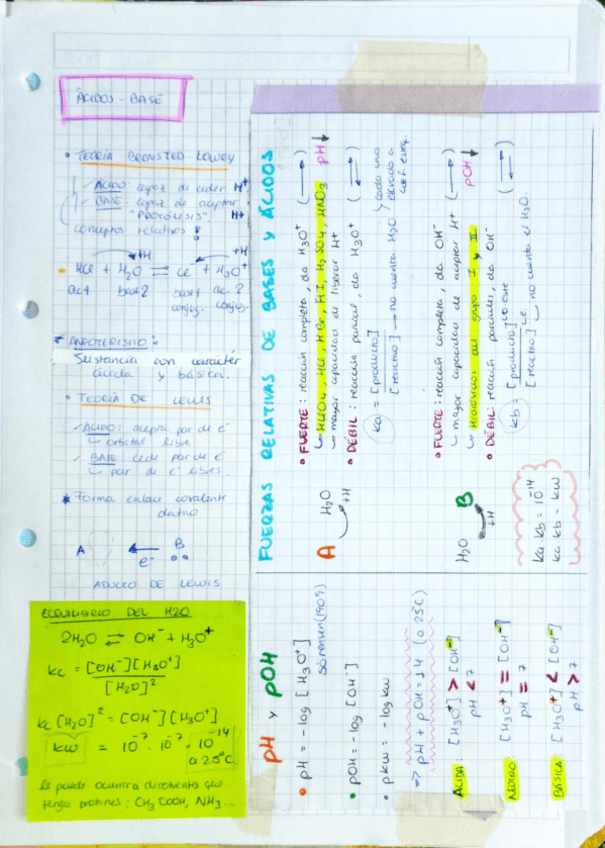 ÁCIDOS - BASE
• TEORÍA BRONSTED-LOWRY
ÁCIDO: capaz de ceder H+
BASE: capaz de aceptar H+
"PROTÓLISIS"
conceptos relativos!
+H +H
HCl + H2O ⇌ Cl- + H3O+
ac1 base2 base1 ac. 2
conjug. conjug.
* ANFOTERISMO:
Sustancia con carácter
ácida y básica.
• TEORÍA DE LEWIS
✓ ÁCIDO: acepta par de e-
↳ orbital libre
✓ BASE: cede par de e-
↳ par de e- libres
* Forma enlace covalente
dativo
A ← B
e-
ADUCTO DE LEWIS
EQUILIBRIO DEL H2O
2H2O ⇌ OH- + H3O+
kc = [OH-][H3O+]
[H2O]2
kc[H2O]2 = [OH-][H3O+]
kw = 10-7 · 10-7 = 10-14
a 25ºC
le puede ocurrir a disolvents que
tenga protones: CH3COOH, NH3...
FUERZAS RELATIVAS DE BASES Y ÁCIDOS
A H2O
+H
• FUERTE: reacción completa, da H3O+ (→) pH↓
↳ HClO4, HCl, HBr, HI, H2SO4, HNO3
↳ mayor capacidad de liberar H+
• DÉBIL: reacción parcial, da H3O+ (⇌)
ka = [producto]
[reactivo] → no cuenta H2O
cada uno
elevado a
coef. esteq.
H2O B
+H
• FUERTE: reacción completa, da OH- (→) pOH↓
↳ mayor capacidad de aceptar H+
↳ Hidróxidos del grupo I y II
• DÉBIL: reacción parcial, da OH- (⇌)
kb = [producto]co.este
[reactivo]c.e. no cuenta el H2O.
ka · kb = 10-14
ka · kb = kw
pH y pOH
• pH = -log [H3O+]
Sörensen (1909)
• pOH = -log [OH-]
• pkw = -log kw
=> pH + pOH = 14 (a 25ºC)
ÁCIDA: [H3O+] > [OH-]
pH < 7
NEUTRO: [H3O+] = [OH-]
pH = 7
BÁSICA: [H3O+] < [OH-]
pH > 7